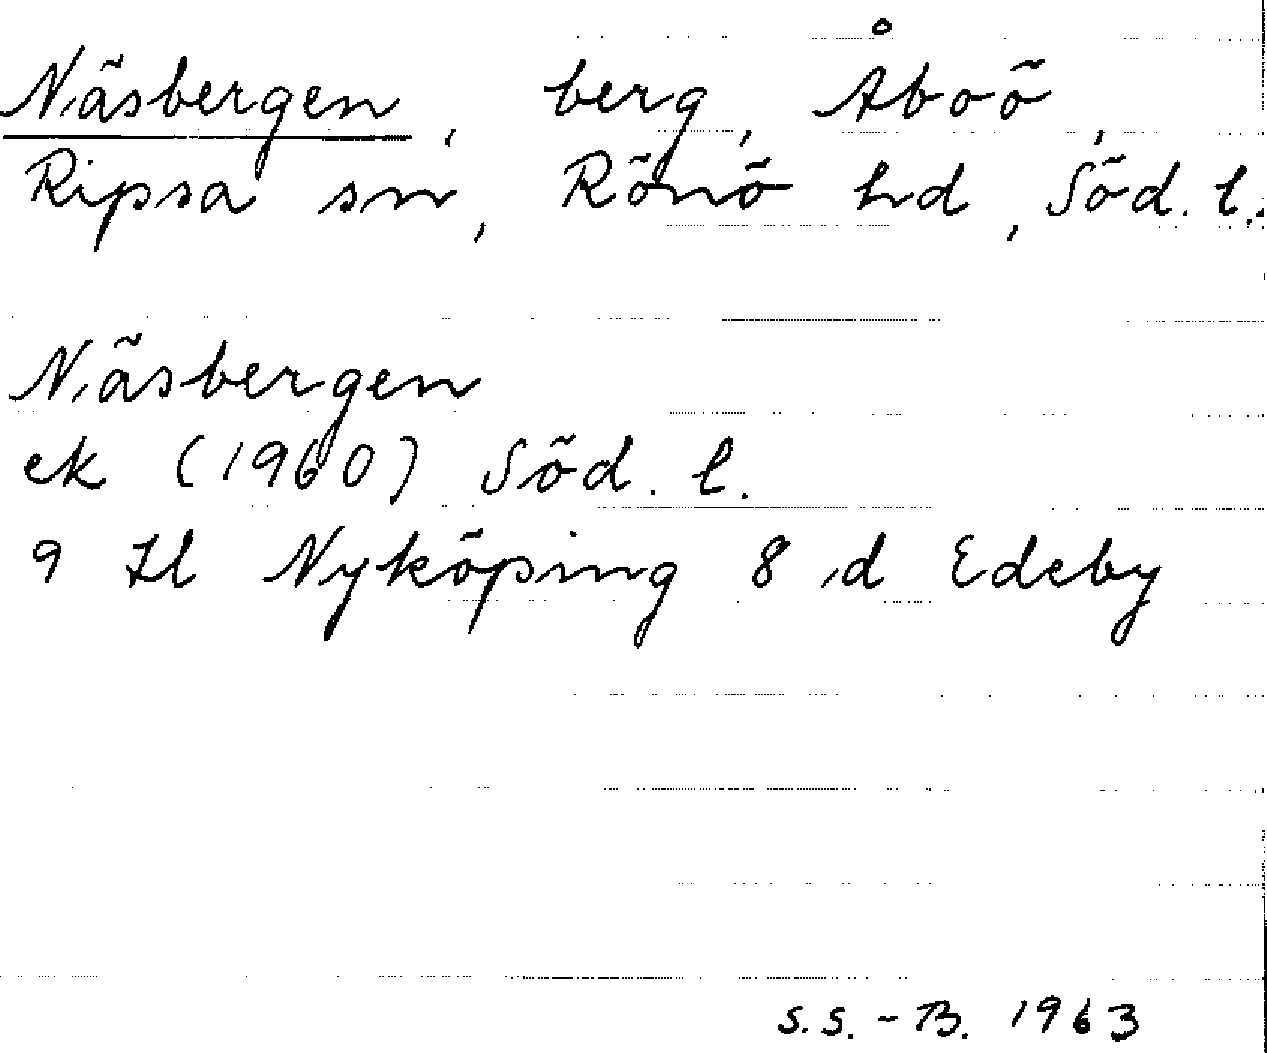 Näsbergen, berg, Åboö,
Ripsa sn, Rönö hd, Söd. l.
Näsbergen
ek (1960) Söd. l.
9 Hl Nyköping 8 d Edeby
S.S.-B. 1963